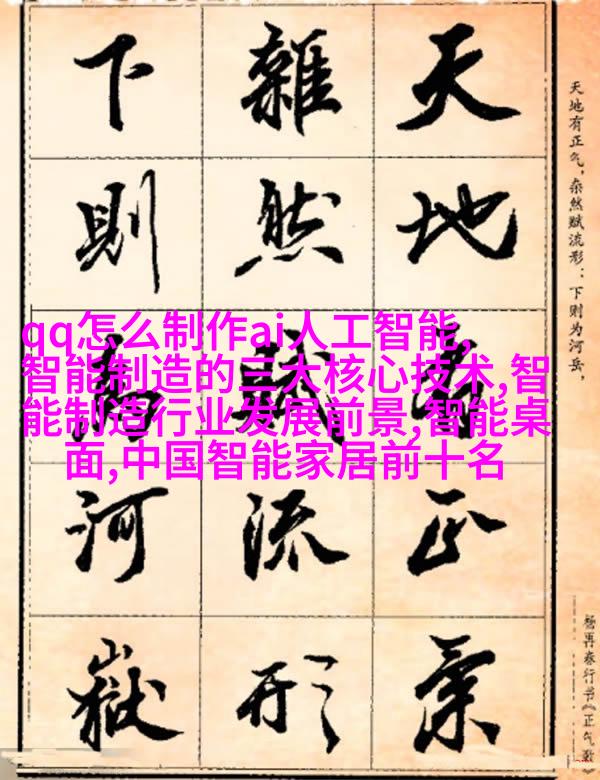 天地有正气，杂然赋流形：下则为河岳，
杨再春行书《正气歌》
天地有正氣
雜然賦流形
下則為河嶽
qq怎么制作ai人工智能,
智能制造的三大核心技术,智
能制造行业发展前景,智能桌
面,中国智能家居前十名